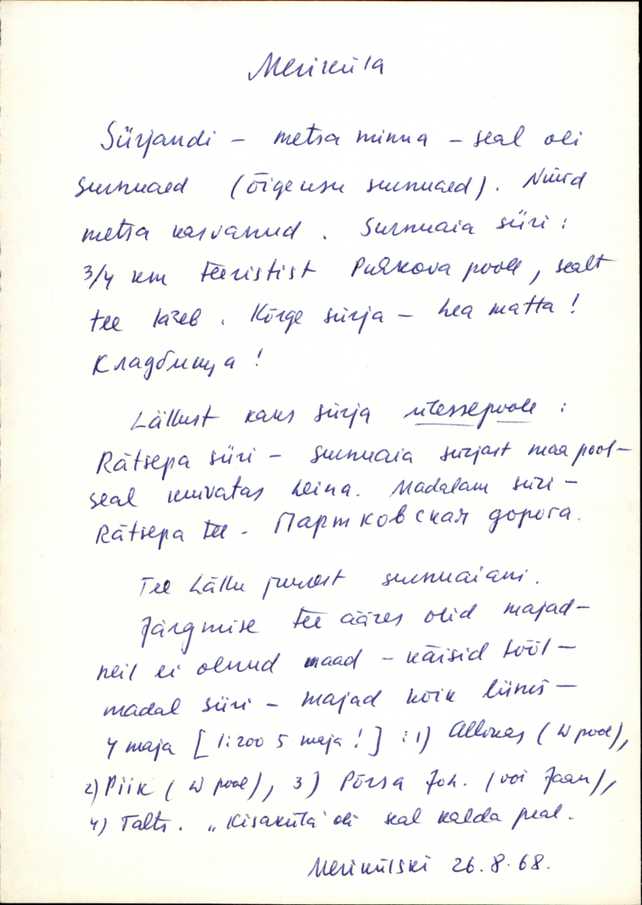 Meriküla
Sürjandi – metsa minna – seal oli
surnuaed (õigeusu surnuaed). Nüüd
metsa kasvanud. Surnuaia süri:
3/4 km teeristist Purkova poole, sealt
tee läheb. Kõrge sürja – hea matta!
Кладбища!
Lällust kaks sürja ülessepoole:
Rätsepa süri – surnuaia sürjast maa pool –
seal kuivatas heina. Madalam süri –
Rätsepa tee – Партковская дорога.
Tee Lällu juurest surnuaiani.
Järgmise tee ääres olid majad –
neil ei olnud maad – käisid tööl –
madal süri – majad kõik liinis –
4 maja [1:200 5 maja!] : 1) Allikas (W pool),
2) Piik (W pool), 3) Põrsa Joh. (või Jaan),
4) Talts. „Kisaküla" oli seal kalda peal.
Meriküljski 26.8.68.